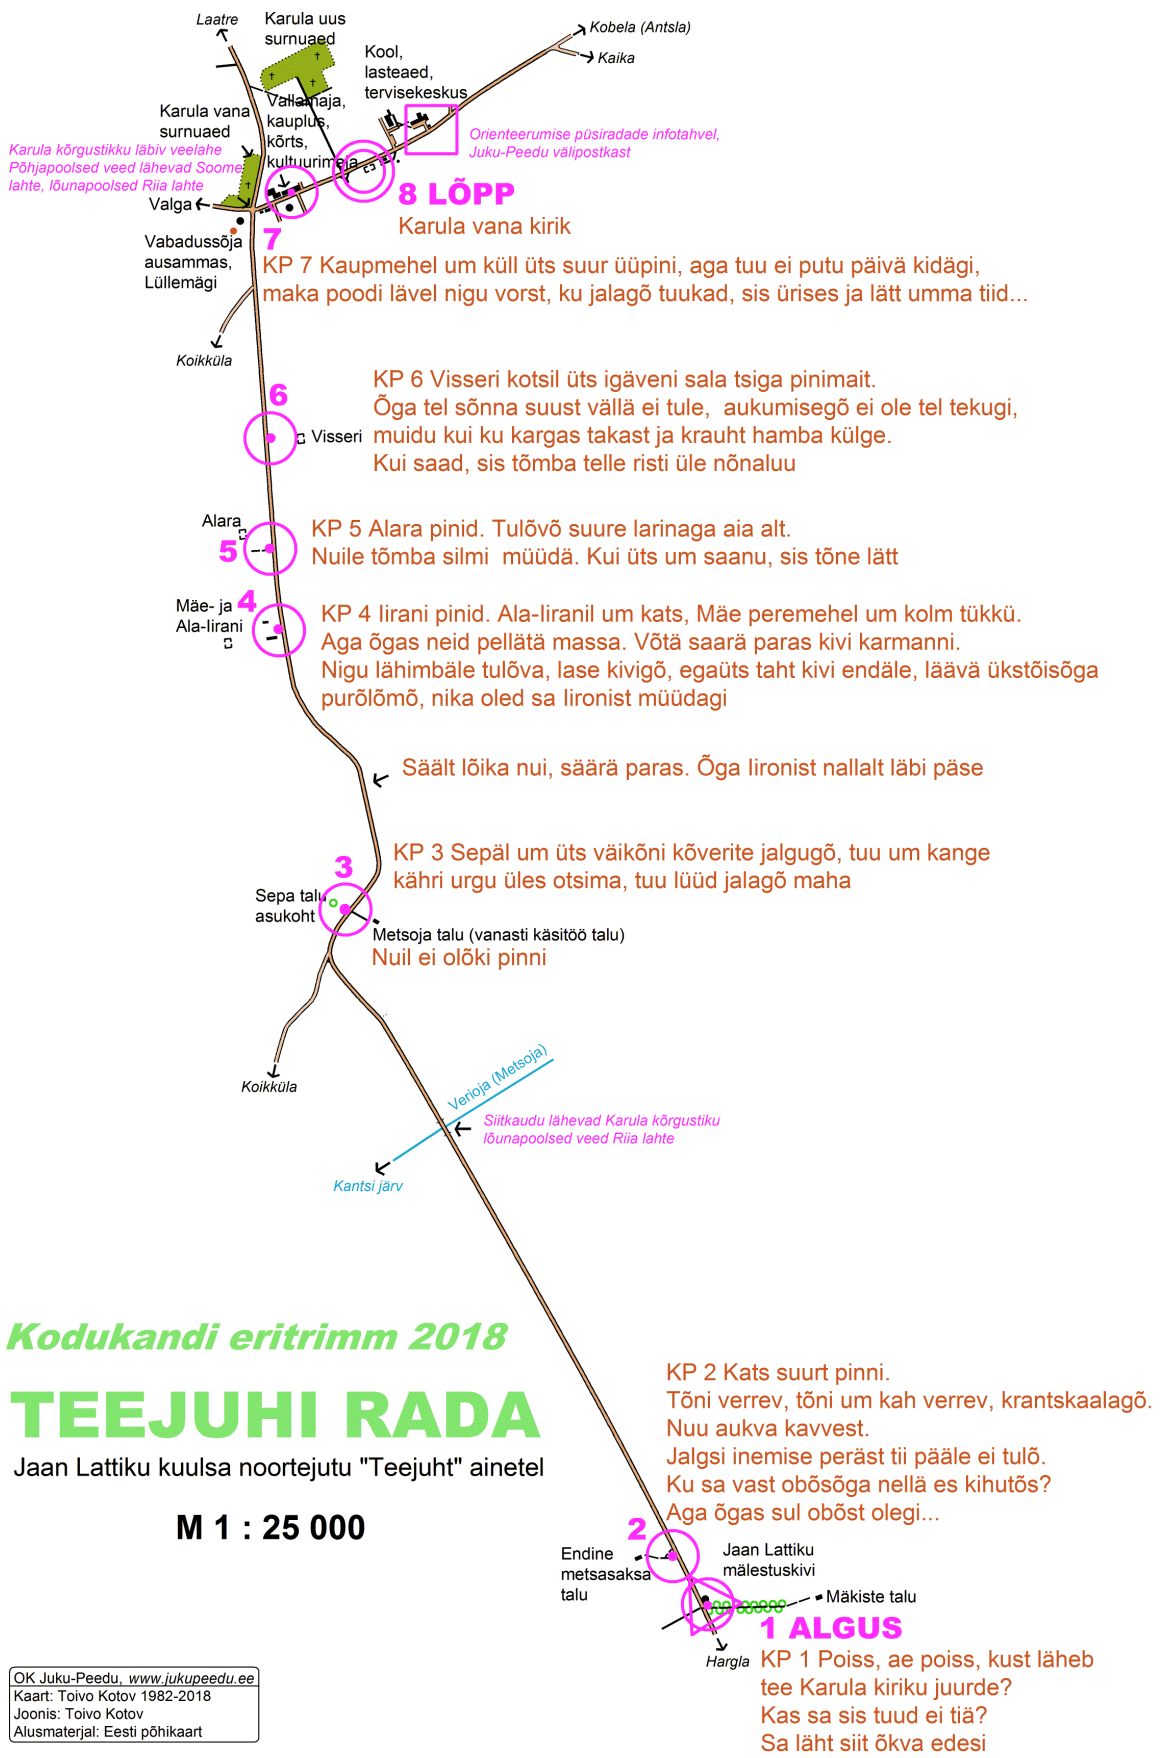 Laatre
Karula uus
surnuaed
Kobela (Antsla)
Kaika
Kool,
lasteaed,
tervisekeskus
Vallamaja,
kauplus,
kõrts,
kultuurimaja
Karula vana
surnuaed
Karula kõrgustikku läbiv veelahe
Põhjapoolsed veed lähevad Soome
lahte, lõunapoolsed Riia lahte
Orienteerumise püsiradade infotahvel,
Juku-Peedu välipostkast
Valga
8 LÕPP
Karula vana kirik
7
Vabadussõja
ausammas,
Lüllemägi
KP 7 Kaupmehel um küll üts suur üüpini, aga tuu ei putu päivä kidägi,
maka poodi lävel nigu vorst, ku jalagõ tuukad, sis ürises ja lätt umma tiid...
Koikküla
6
Visseri
KP 6 Visseri kotsil üts igäveni sala tsiga pinimait.
Õga tel sõnna suust vällä ei tule,  aukumisegõ ei ole tel tekugi,
muidu kui ku kargas takast ja krauht hamba külge.
Kui saad, sis tõmba telle risti üle nõnaluu
Alara
5
KP 5 Alara pinid. Tulõvõ suure larinaga aia alt.
Nuile tõmba silmi  müüdä. Kui üts um saanu, sis tõne lätt
Mäe- ja
Ala-Iirani
4
KP 4 Iirani pinid. Ala-Iiranil um kats, Mäe peremehel um kolm tükkü.
Aga õgas neid pellätä massa. Võtä saarä paras kivi karmanni.
Nigu lähimbäle tulõva, lase kivigõ, egaüts taht kivi endäle, läävä ükstõisõga
purõlõmõ, nika oled sa Iironist müüdagi
Säält lõika nui, säärä paras. Õga Iironist nallalt läbi päse
3
KP 3 Sepäl um üts väikõni kõverite jalgugõ, tuu um kange
kähri urgu üles otsima, tuu lüüd jalagõ maha
Sepa talu
asukoht
Metsoja talu (vanasti käsitöö talu)
Nuil ei olõki pinni
Koikküla
Verioja (Metsoja)
Siitkaudu lähevad Karula kõrgustiku
lõunapoolsed veed Riia lahte
Kantsi järv
Kodukandi eritrimm 2018
TEEJUHI RADA
Jaan Lattiku kuulsa noortejutu "Teejuht" ainetel
M 1 : 25 000
KP 2 Kats suurt pinni.
Tõni verrev, tõni um kah verrev, krantskaalagõ.
Nuu aukva kavvest.
Jalgsi inemise peräst tii pääle ei tulõ.
Ku sa vast obõsõga nellä es kihutõs?
Aga õgas sul obõst olegi...
2
Endine
metsasaksa
talu
Jaan Lattiku
mälestuskivi
Mäkiste talu
1 ALGUS
Hargla
KP 1 Poiss, ae poiss, kust läheb
tee Karula kiriku juurde?
Kas sa sis tuud ei tiä?
Sa läht siit õkva edesi
OK Juku-Peedu, www.jukupeedu.ee
Kaart: Toivo Kotov 1982-2018
Joonis: Toivo Kotov
Alusmaterjal: Eesti põhikaart